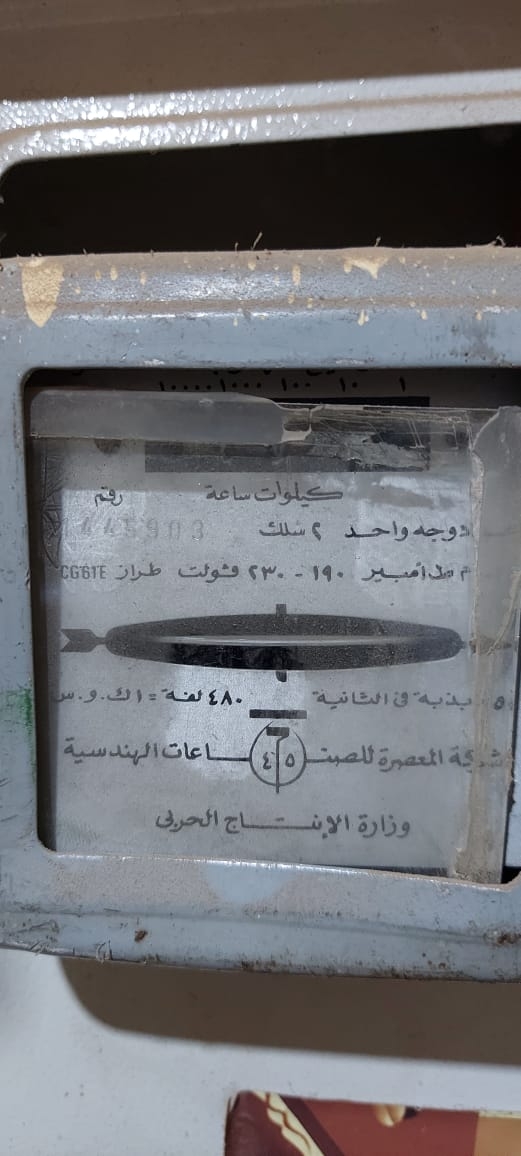 ١٠٠٠٠ ١٠٠٠ ١٠٠ ١٠ ١
كيلوات ساعة رقم
ذو وجه واحد ٢ سلك 445903
أمبير ١٩٠ - ٢٣٠ ڤولت طراز CG61E
٥٠ ذبذبة فى الثانية ٤٨٠ لفة = ١ ك.و.س
شركة المعصرة للصناعات الهندسية
٤٥
وزارة الإنتاج الحربى